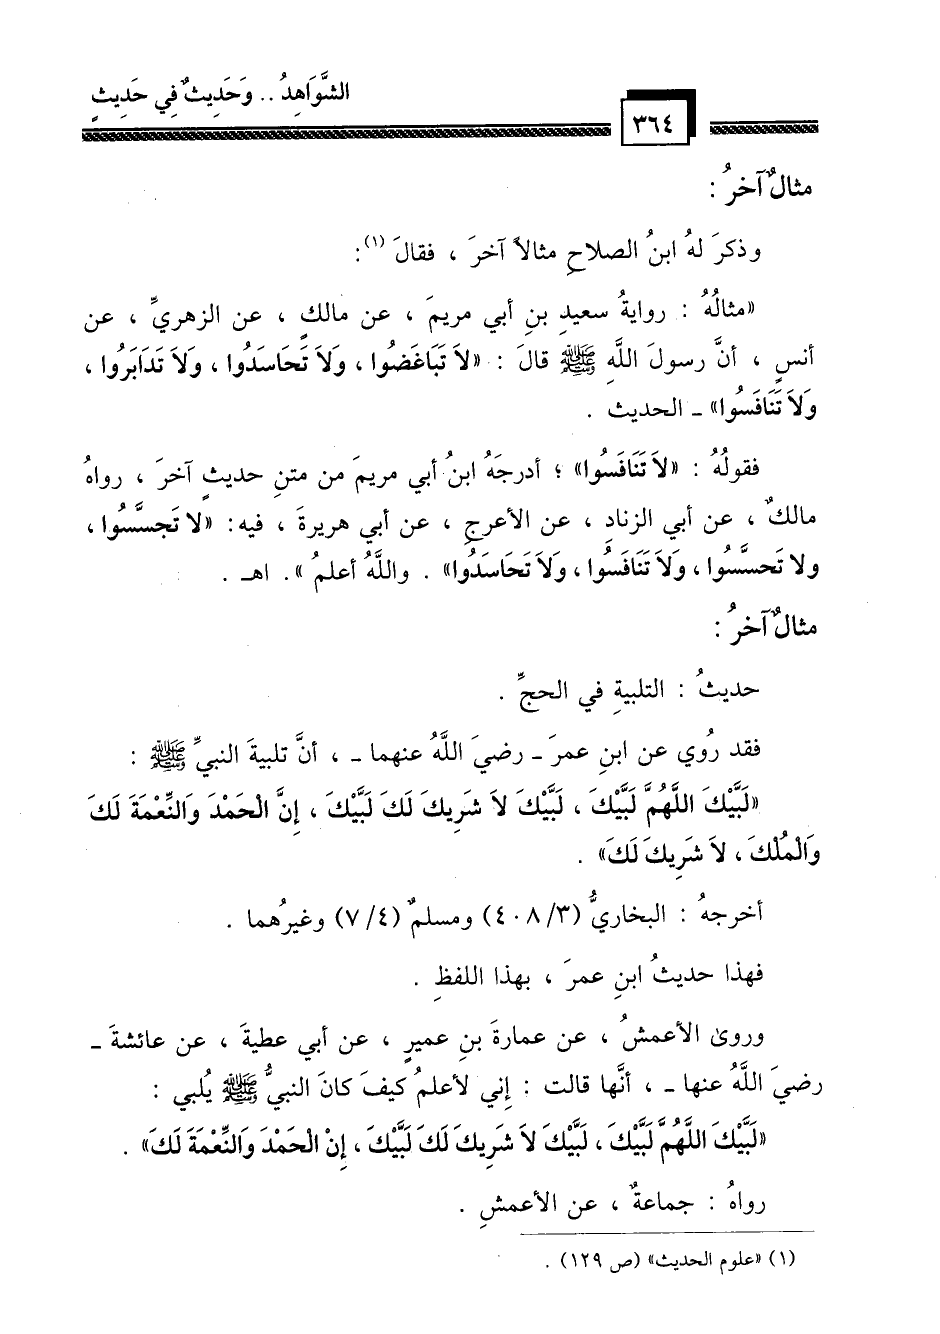 الشَّوَاهِدُ .. وَحَدِيثٌ فِي حَدِيثٍ
٣٦٤
مثالٌ آخرُ :
وذكرَ لهُ ابنُ الصلاحِ مثالاً آخرَ ، فقالَ (١):
«مثالُهُ : روايةُ سعيدِ بنِ أبي مريمَ ، عن مالكٍ ، عن الزهريِّ ، عن
أنسٍ ، أنَّ رسولَ اللَّهِ ﷺ قالَ : «لاَ تَبَاغَضُوا ، وَلاَ تَحَاسَدُوا ، وَلاَ تَدَابَرُوا ،
وَلاَ تَنَافَسُوا» ـ الحديث .
فقولُهُ : «لاَ تَنَافَسُوا» ؛ أدرجَهُ ابنُ أبي مريمَ من متنِ حديثٍ آخرَ ، رواهُ
مالكٌ ، عن أبي الزنادِ ، عن الأعرجِ ، عن أبي هريرةَ ، فيه: «لا تَجسَّسُوا ،
ولا تَحسَّسُوا ، وَلاَ تَنَافَسُوا ، وَلاَ تَحَاسَدُوا» . واللَّهُ أعلمُ ». اهـ .
مثالٌ آخرُ :
حديثُ : التلبيةِ في الحجِّ .
فقد رُوي عن ابنِ عمرَ ـ رضيَ اللَّهُ عنهما ـ ، أنَّ تلبيةَ النبيِّ ﷺ :
«لَبَّيْكَ اللَّهُمَّ لَبَّيْكَ ، لَبَّيْكَ لاَ شَرِيكَ لَكَ لَبَّيْكَ ، إِنَّ الْحَمْدَ وَالنِّعْمَةَ لَكَ
وَالْمُلْكَ ، لاَ شَرِيكَ لَكَ» .
أخرجهُ : البخاريُّ (٤٠٨/٣) ومسلمٌ (٧/٤) وغيرُهما .
فهذا حديثُ ابنِ عمرَ ، بهذا اللفظِ .
وروىٰ الأعمشُ ، عن عمارةَ بنِ عميرٍ ، عن أبي عطيةَ ، عن عائشةَ ـ
رضيَ اللَّهُ عنها ـ ، أنَّها قالت : إِني لأعلمُ كيفَ كانَ النبيُّ ﷺ يُلبي :
«لَبَّيْكَ اللَّهُمَّ لَبَّيْكَ ، لَبَّيْكَ لاَ شَرِيكَ لَكَ لَبَّيْكَ ، إِنْ الْحَمْدَ وَالنِّعْمَةَ لَكَ» .
رواهُ : جماعةٌ ، عن الأعمشِ .
(١) «علوم الحديث» (ص ١٢٩) .